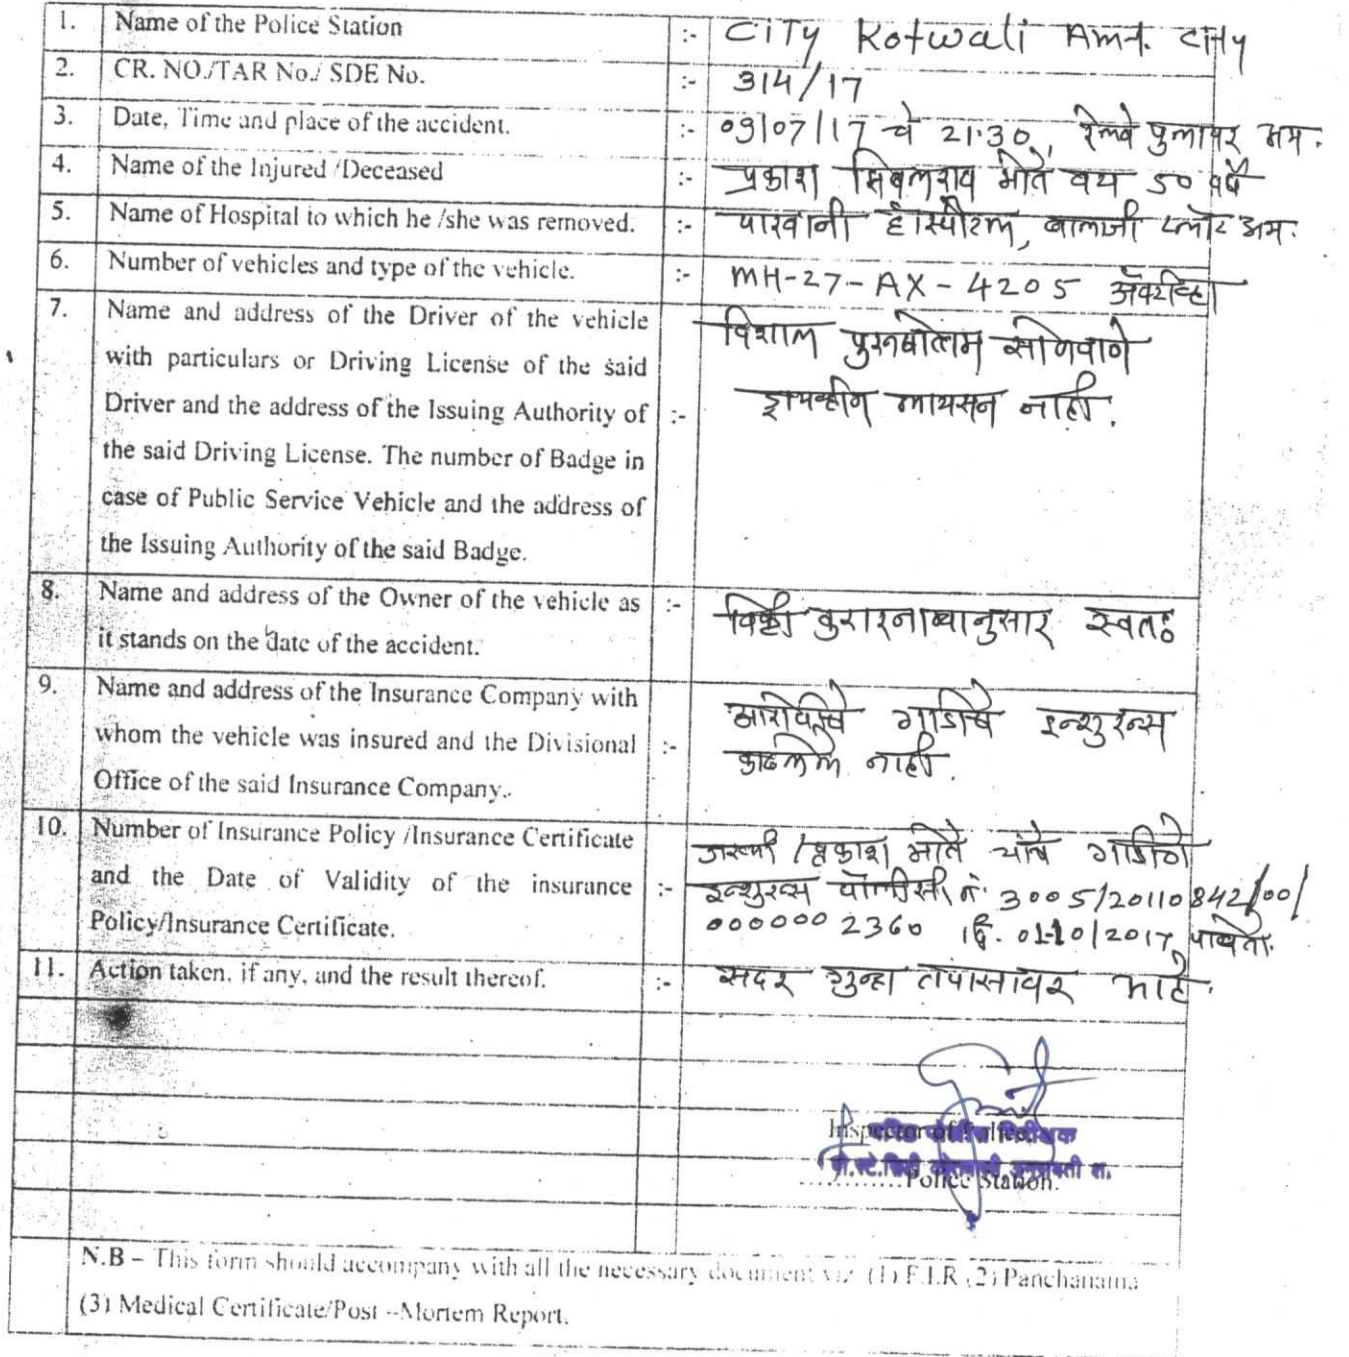 1. Name of the Police Station :- CiTy Kotwali Amt. City
2. CR. NO./TAR No./ SDE No. :- 314/17
3. Date, Time and place of the accident. :- 09/07/17 चे 21:30, रेल्वे पुलावर अम.
4. Name of the Injured /Deceased :- प्रकाश मोते वय 50 वर्षे
5. Name of Hospital to which he /she was removed. :- पारवानी हॉस्पीटल, बालाजी प्लॉट अम.
6. Number of vehicles and type of the vehicle. :- MH-27-AX-4205 ॲक्टीव्हा
7. Name and address of the Driver of the vehicle
with particulars or Driving License of the said
Driver and the address of the Issuing Authority of
the said Driving License. The number of Badge in
case of Public Service Vehicle and the address of
the Issuing Authority of the said Badge.
:-
विशाल पुरुषोत्तम सोनवाने
ड्रायव्हींग लायसन नाही.
8. Name and address of the Owner of the vehicle as
it stands on the date of the accident.
:- विक्री करारनाम्यानुसार स्वतः
9. Name and address of the Insurance Company with
whom the vehicle was insured and the Divisional
Office of the said Insurance Company.
:-
आरोपीचे गाडीचे इन्शुरन्स
काढलेले नाही.
10. Number of Insurance Policy /Insurance Certificate
and the Date of Validity of the insurance
Policy/Insurance Certificate.
:-
जख्मी / प्रकाश मोते यांचे गाडीचे
इन्शुरन्स पॉलीसी नं. 3005/20110842/00/
000000 2360 दि. 01-10/2017 पावेतो.
11. Action taken, if any, and the result thereof. :- सदर गुन्हा तपासावर आहे.
Inspector of Police
............Police Station.
N.B – This form should accompany with all the necessary document viz (1) F.I.R (2) Panchanama
(3) Medical Certificate/Post –Mortem Report.